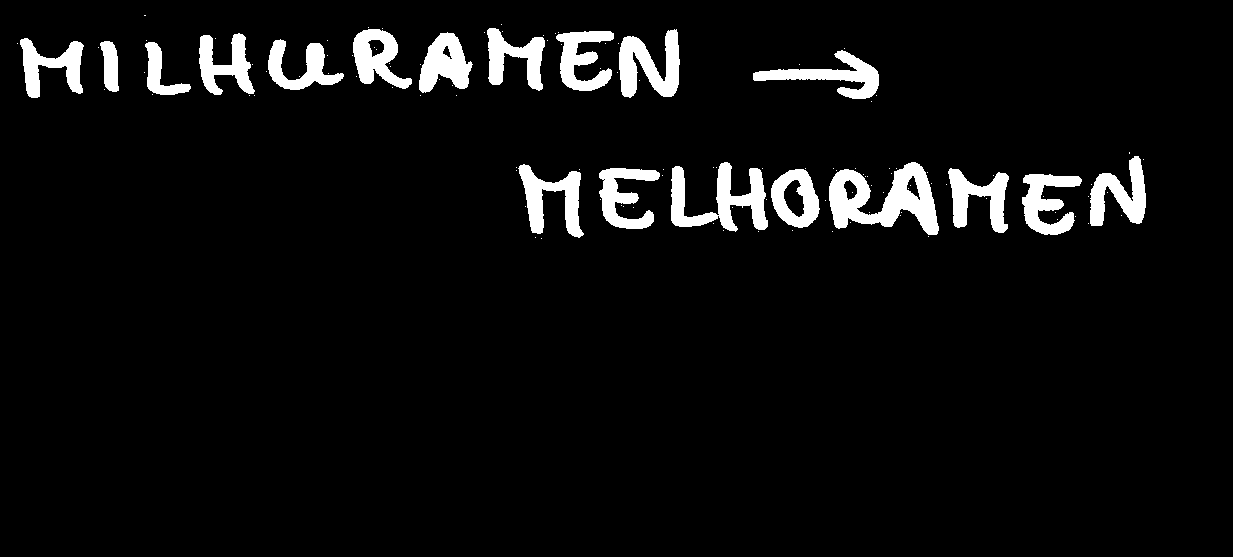 MILHURAMEN →
MELHORAMEN